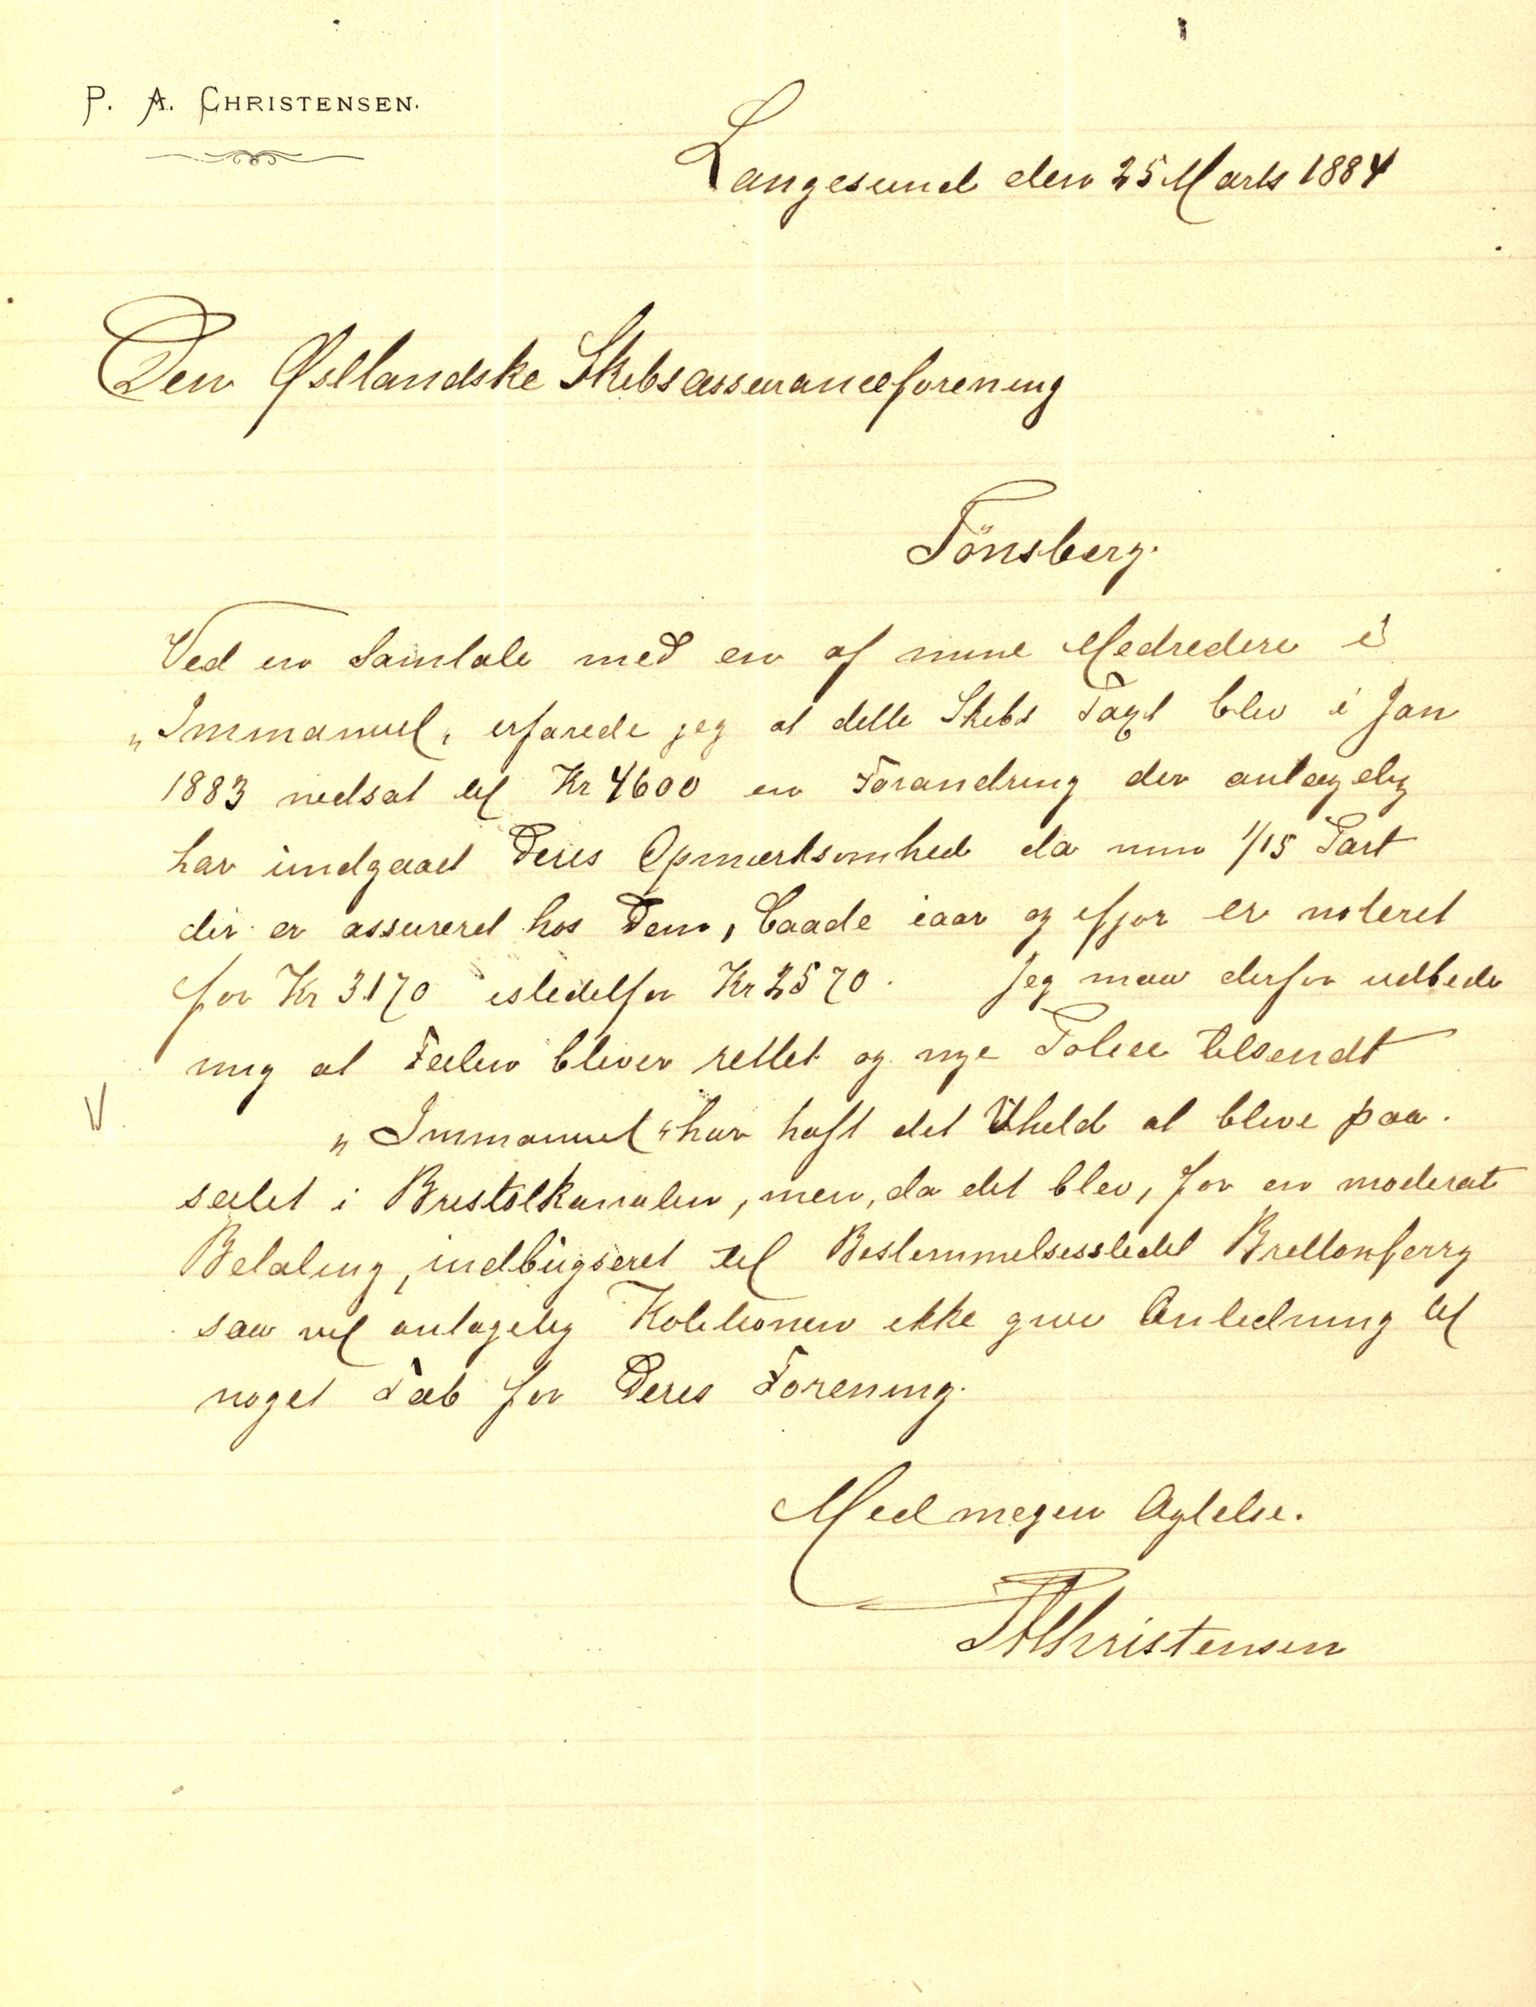 P. A. CHRISTENSEN.
Langesund den 25 Marts 1884
Den Østlandske Skibsassuranceforening
Tönsberg.
Ved en Samtale med en af mine Medredere i
"Immanuel" erfarede jeg at dette Skibs Taxt blev i Jan
1883 nedsat til Kr 4600 en Forandring der antagelig
har undgaaet Deres Opmærksomhed da min 1/15 Part
der er assureret hos Dem, baade iaar og ifjor er noteret
for Kr 3170 istedetfor Kr 2570. Jeg maa derfor udbede
mig at Feilen bliver rettet og nye Police tilsendt
"Immanuel" har haft det Uheld at blive paa.
seilet i Bristolkanalen, men, da det blev, for en moderat
Betaling, indbugseret til Bestemmelsesstedet Brittonferry
saa vil antagelig Kolitionen ikke give Anledning til
noget Tab for Deres Forening.
Med megen Agtelse.
PAChristensen